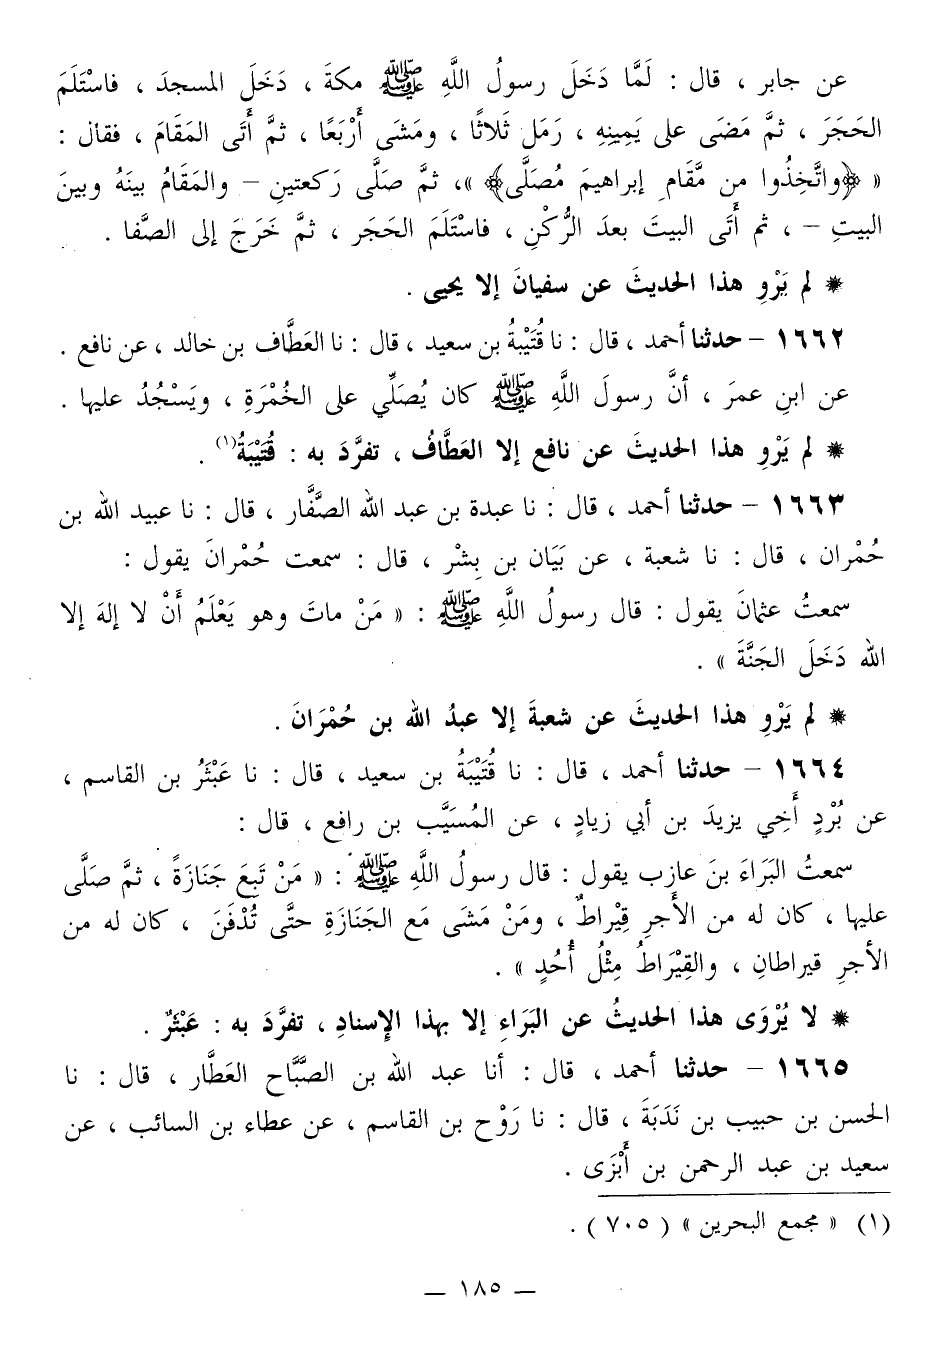 عن جابر ، قال : لَمَّا دَخَلَ رسولُ اللَّهِ ﷺ مكةَ ، دَخَلَ المسجدَ ، فاسْتَلَمَ
الحَجَرَ ، ثمَّ مَضَى على يَمِينِهِ ، رَمَل ثَلاثًا ، ومَشَى أَرْبَعًا ، ثمَّ أَتَى المَقَامَ ، فقال :
« ﴿واتَّخِذُوا من مَّقَامِ إبراهيمَ مُصَلَّى﴾ »، ثمَّ صَلَّى رَكعتينِ – والمَقَامُ بينَهُ وبينَ
البيتِ – ، ثم أَتَى البيتَ بعدَ الرُّكْنِ ، فاسْتَلَمَ الحَجَر ، ثمَّ خَرَجَ إلى الصَّفا .
* لم يَرْوِ هذا الحديثَ عن سفيانَ إلا يحيى .
١٦٦٢ – حدثنا أحمد ، قال : نا قُتَيْبَةُ بن سعيد ، قال : نا العَطَّاف بن خالد ، عن نافع .
عن ابنِ عمرَ ، أنَّ رسولَ اللَّهِ ﷺ كان يُصَلِّي على الخُمْرَةِ ، ويَسْجُدُ عليها .
* لم يَرْوِ هذا الحديثَ عن نافع إلا العَطَّافُ ، تفرَّدَ به : قُتَيْبَةُ(١) .
١٦٦٣ – حدثنا أحمد ، قال : نا عبدة بن عبد الله الصَّفَّار ، قال : نا عبيد الله بن
حُمْران ، قال : نا شعبة ، عن بَيَان بن بِشْر ، قال : سمعت حُمْرانَ يقول :
سمعتُ عثمانَ يقول : قال رسولُ اللَّهِ ﷺ : « مَنْ ماتَ وهو يَعْلَمُ أَنْ لا إلهَ إلا
الله دَخَلَ الجَنَّةَ » .
* لم يَرْوِ هذا الحديثَ عن شعبةَ إلا عبدُ الله بن حُمْرَانَ .
١٦٦٤ – حدثنا أحمد ، قال : نا قُتَيْبَةُ بن سعيد ، قال : نا عَبْثَرُ بن القاسم ،
عن بُرْدٍ أَخِي يزيدَ بن أبي زيادٍ ، عن المُسَيَّب بن رافع ، قال :
سمعتُ البَرَاءَ بنَ عازب يقول : قال رسولُ اللَّهِ ﷺ : « مَنْ تَبِعَ جَنَازَةً ، ثمَّ صَلَّى
عليها ، كان له من الأَجرِ قِيْراطٌ ، ومَنْ مَشَى مَع الجَنَازةِ حتَّى تُدْفَنَ ، كان له من
الأجرِ قيراطانِ ، والقِيْرَاطُ مِثْلُ أُحُدٍ » .
* لا يُرْوَى هذا الحديثُ عن البَرَاءِ إلا بهذا الإسنادِ ، تفرَّدَ به : عَبْثَرٌ .
١٦٦٥ – حدثنا أحمد ، قال : أنا عبد الله بن الصَّبَّاح العَطَّار ، قال : نا
الحسن بن حبيب بن نَدَبَةَ ، قال : نا رَوْح بن القاسم ، عن عطاء بن السائب ، عن
سعيد بن عبد الرحمن بن أَبْزَى .
(١) « مجمع البحرين » ( ٧٠٥ ) .
– ١٨٥ –